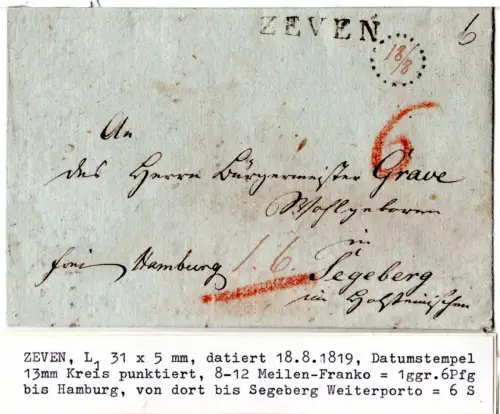 ZEVEN
6
18/8
An
des Herrn Bürgermeister Grave
6
Wohlgeboren
in
frei Hamburg 1. 6. Segeberg
im Holsteinischen
ZEVEN, L1 31 x 5 mm, datiert 18.8.1819, Datumstempel
13mm Kreis punktiert, 8-12 Meilen-Franko = 1ggr.6Pfg
bis Hamburg, von dort bis Segeberg Weiterporto = 6 S